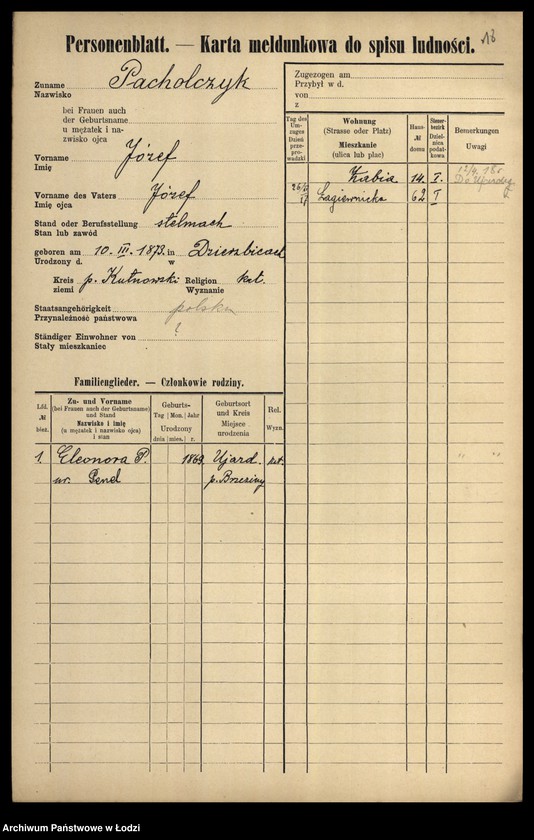 18
Personenblatt. — Karta meldunkowa do spisu ludności.
Zuname Pacholczyk
Nazwisko
bei Frauen auch
der Geburtsname
u mężatek i na-
zwisko ojca
Vorname Józef
Imię
Vorname des Vaters Józef
Imię ojca
Stand oder Berufsstellung stelmach
Stan lub zawód
geboren am 10. III. 1873. in Dzierzbicach
Urodzony d. w
Kreis p. Kutnowski Religion kat.
ziemi Wyznanie
Staatsangehörigkeit polska
Przynależność państwowa
Ständiger Einwohner von ?
Stały mieszkaniec
Zugezogen am
Przybył w d.
von
z
Tag des Um-zuges Dzień prze-prowadzki
Wohnung (Strasse oder Platz) Mieszkanie (ulica lub plac)
Haus- № domu
Steuer-bezirk Dziel-nica podat-kowa
Bemerkungen Uwagi
Kabia 14. I. 12/4. 18
26/2 17 Łagiewnicka 62 I
Familienglieder. — Członkowie rodziny.
Lfd. № bież.
Zu- und Vorname (bei Frauen auch der Geburtsname) und Stand Nazwisko i imię (u mężatek i nazwisko ojca) i stan
Geburts- Tag Mon. Jahr Urodzony dnia mies. r.
Geburtsort und Kreis Miejsce urodzenia
Rel. Wyzn.
1. Eleonora P. 1869. Ujazd. kat. " "
ur. Genel p. Brzeziny
Archiwum Państwowe w Łodzi